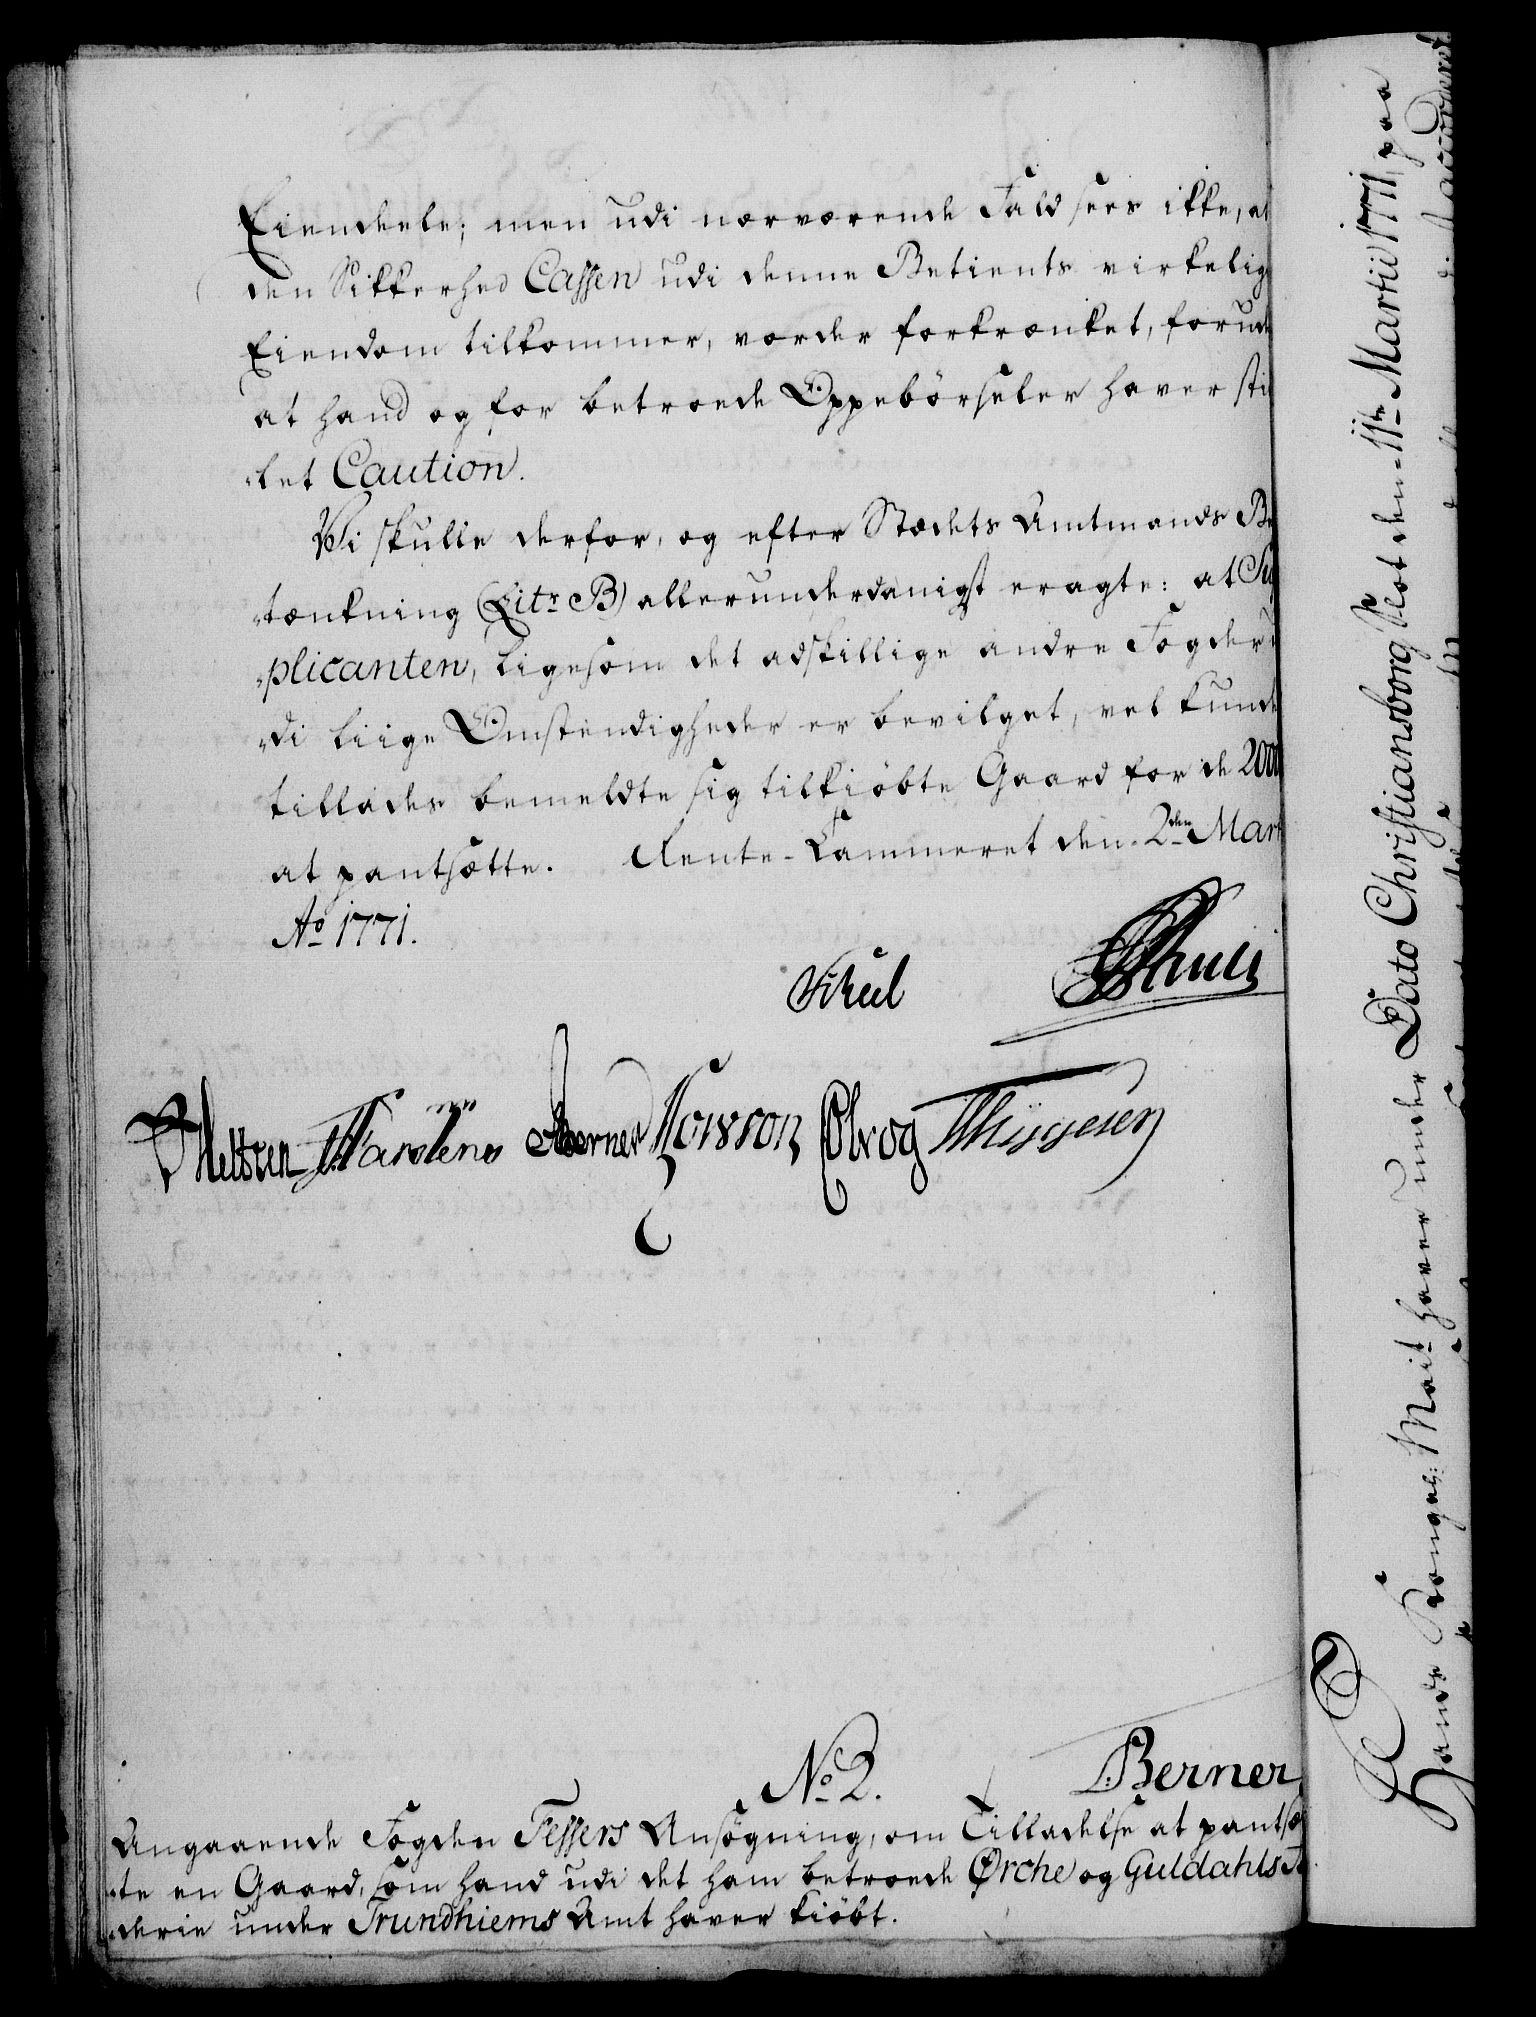 Eiendeele; men udi nærværende Fald sees ikke, at
den Sikkerhed Cassen udi denne Betients virkelig
Eiendom tilkommer, vorder forkrænket, forude
at hand og for betroede Oppebörseler haver stil
let Caution.
Vi skulle derfor, og efter Stædets Amtmands Be
tænkning (Litr B) allerunderdanigst eragte: at Sup
plicanten, ligesom det adskillige andre Fogder u
di liige Omstendigheder er bevilget, vel kunde
tillades bemeldte sig tilkiøbte Gaard for de 2000
at pantsætte. Rente-Cammeret den 2den Mart
Ao 1771.
Schul
Nellsen Berner Olrog Thygesen
No 2. Berner
Angaaende Fogden Fessers Ansøgning, om Tilladelse at pantsæ
te en Gaard, som hand udi det ham betroede Ørche og Guldahls Fo
derie under Trundhiems Amt haver kiöbt.
Hands Kongel: Mait haver under Dato Christiansborg Slot den 11te Martii 1771, paa